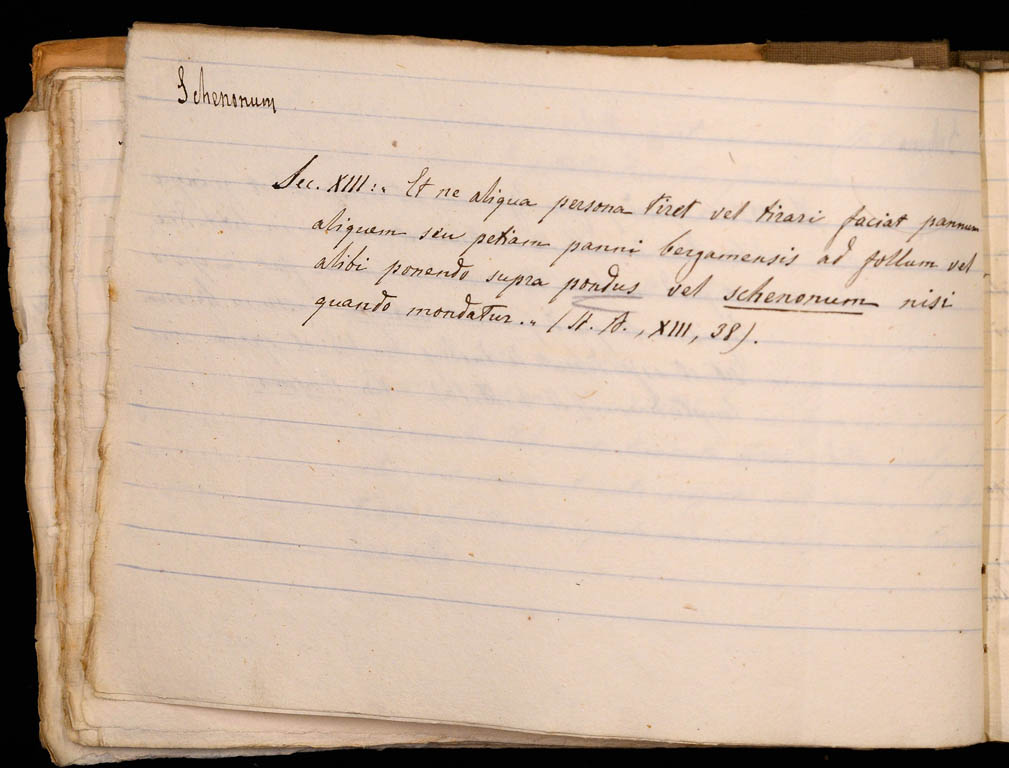 Schenonum
Sec. XIII: „ Et ne aliqua persona tiret vel tirari faciat pannum
aliquem seu petiam panni bergamensis ad follum vel
alibi ponendo supra pondus vel schenonum nisi
quando mondatur. „ (St. A., XIII, 38).